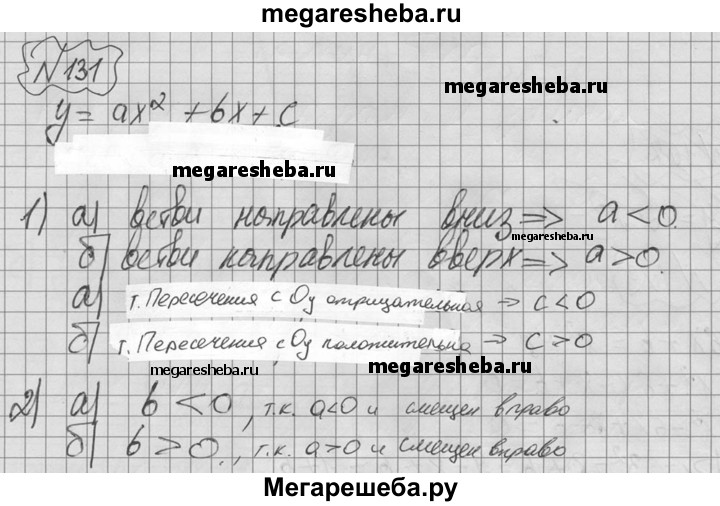 megaresheba.ru
N 131
megaresheba.ru
y = ax² + bx + c
megaresheba.ru
1) а) ветви направлены вниз => a < 0
megaresheba.ru
б) ветви направлены вверх => a > 0
а) т. Пересечения с Оу отрицательная → c < 0
б) т. Пересечения с Оу положительна → c > 0
megaresheba.ru megaresheba.ru
2) а) b < 0, т.к. a < 0 и смещен вправо
б) b > 0, т.к. a > 0 и смещен вправо
Мегарешеба.ру